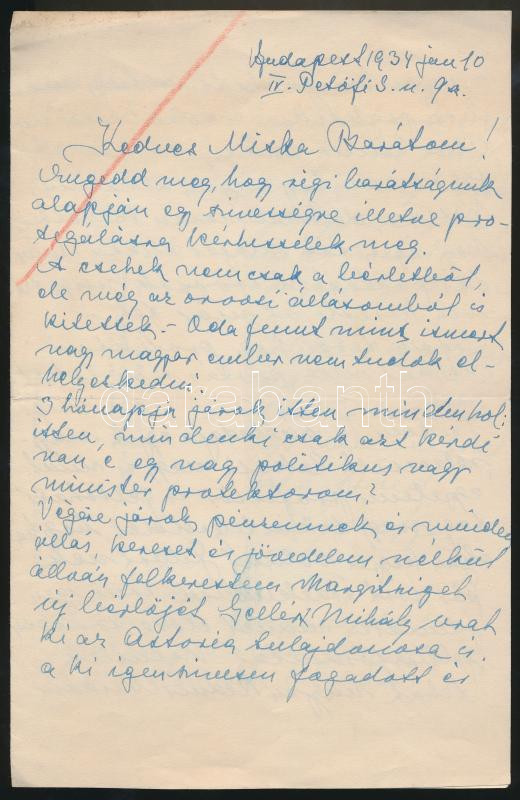 Budapest 1934 jan 10
IV. Petőfi S. u. 9 sz.
Kedves Miska Barátom!
Engedd meg, hogy régi barátságunk
alapján egy szivességre illetve pro-
tegálásra kérhesselek meg.
A csehek nemcsak a bérletből,
de még az orvosi állásomból is
kitettek.- Oda fennt mint ismert
nagy magyar ember nem tudok el-
helyezkedni.
3 hónapja járok itten mindenhol;
itten, mindenki csak azt kérdi
van é egy nagy politikus vagy
minister protektorom?
Végére járok pénzemnek és minden
állás, kereset és jövedelem nélkül
állván felkerestem Margitsziget
új bérlőjét Gellért Mihály urat
ki az Astoria tulajdonosa is.
a ki igen szivesen fogadott és
darabanth